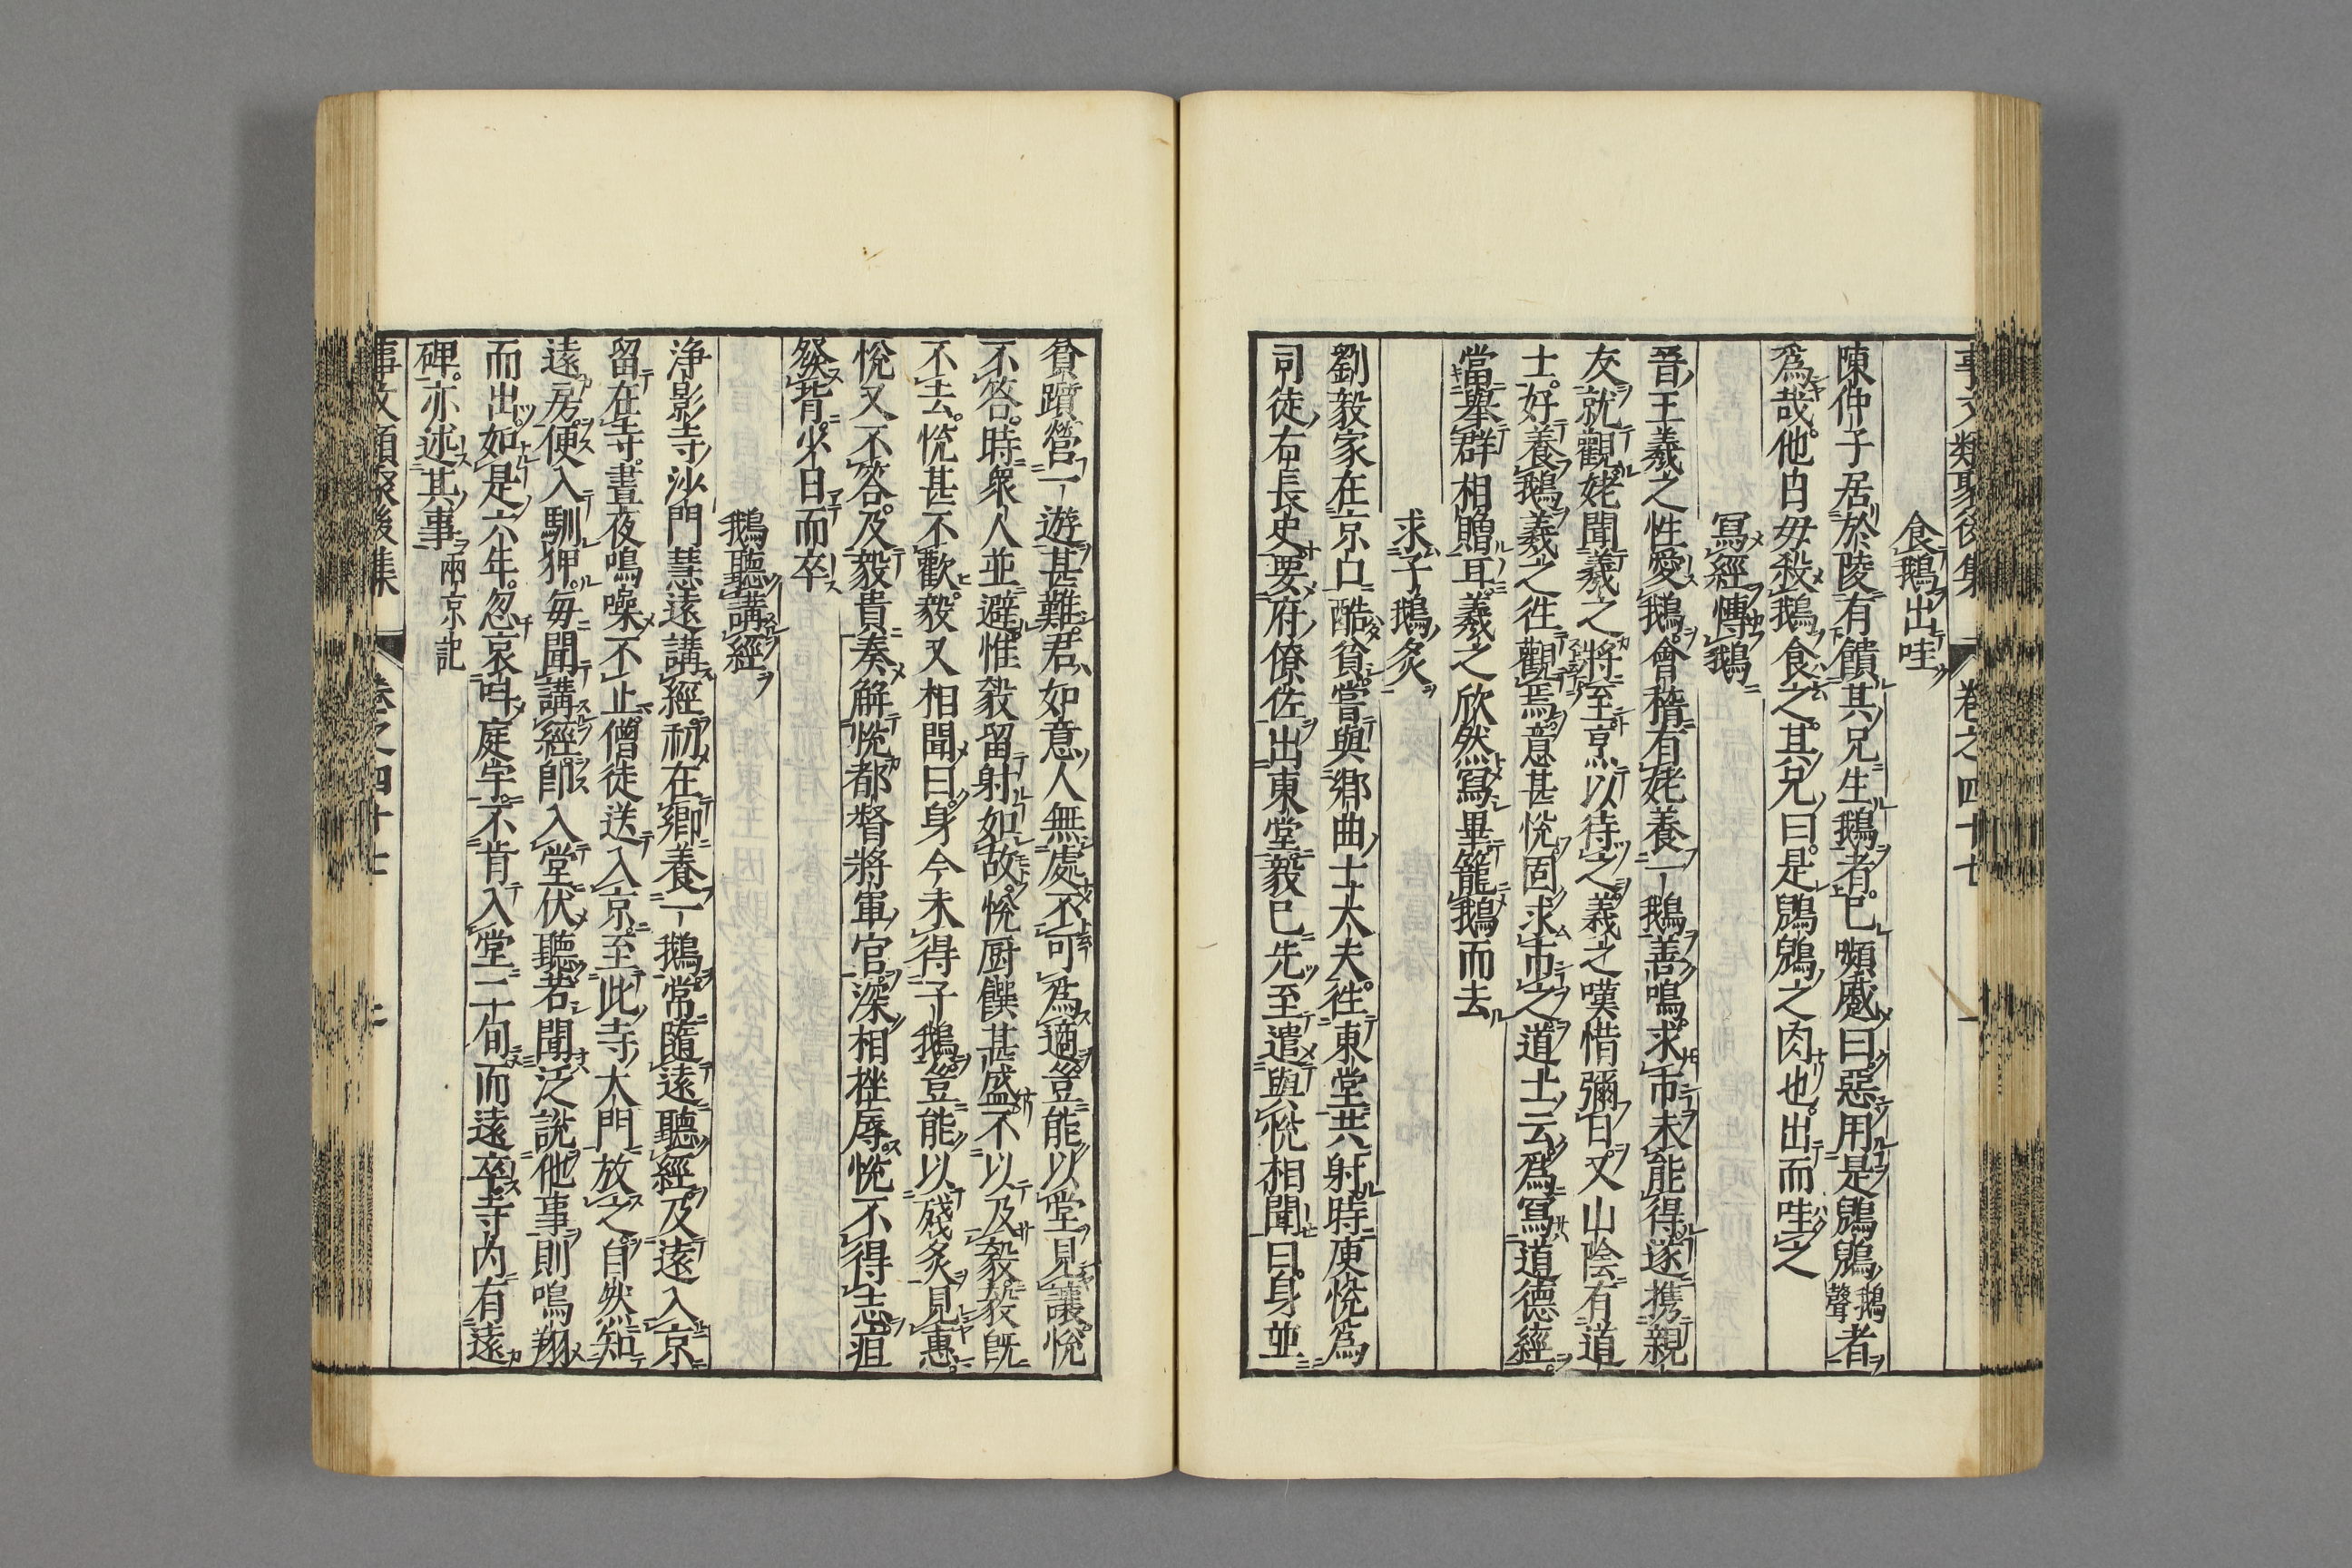 事文類聚後集 卷之四十七
食鵝出哇
陳仲子居於陵有饋其兄生鵝者已嚬蹙曰惡用是鶂鶂鵝聲者
爲哉他日母殺鵝食之其兄曰是鶂鶂之肉也出而哇之
寫經慱鵝
晉王羲之性愛鵝會稽有姥養一鵝善鳴求市未能得遂携親
友就觀姥聞羲之將至烹以待之羲之嘆惜彌日又山陰有道
士好養鵝羲之徃觀焉意甚悅固求市之道士云爲寫道德經
當舉群相贈耳羲之欣然寫畢籠鵝而去
求子鵝炙
劉毅家在京口酷貧嘗與鄉曲士大夫徃東堂共射時庾悅爲
司徒右長史要府僚佐出東堂毅已先至遣與悅相聞曰身並
貧躓營一遊甚難君如意人無處不可爲適豈能以堂見讓悅
不答時衆人並避惟毅留射如故悅厨饌甚盛不以及毅毅旣
不去悅甚不歡毅又相聞曰身今未得子鵝豈能以殘炙見惠
悅又不答及毅貴奏解悅都督將軍官深相挫辱悅不得志疽
發背少日而卒
鵝聽講經
浄影寺沙門慧遠講經初在鄉養一鵝常隨遠聽經及遠入京
留在寺晝夜鳴噪不止僧徒送入京至此寺大門放之自然知
遠房便入馴狎每聞講經卽入堂伏聽若聞泛說他事則鳴翔
而出如是六年忽哀叫庭宇不肯入堂二十旬而遠卒寺內有遠
碑亦述其事兩京記
事文類聚後集 卷之四十七